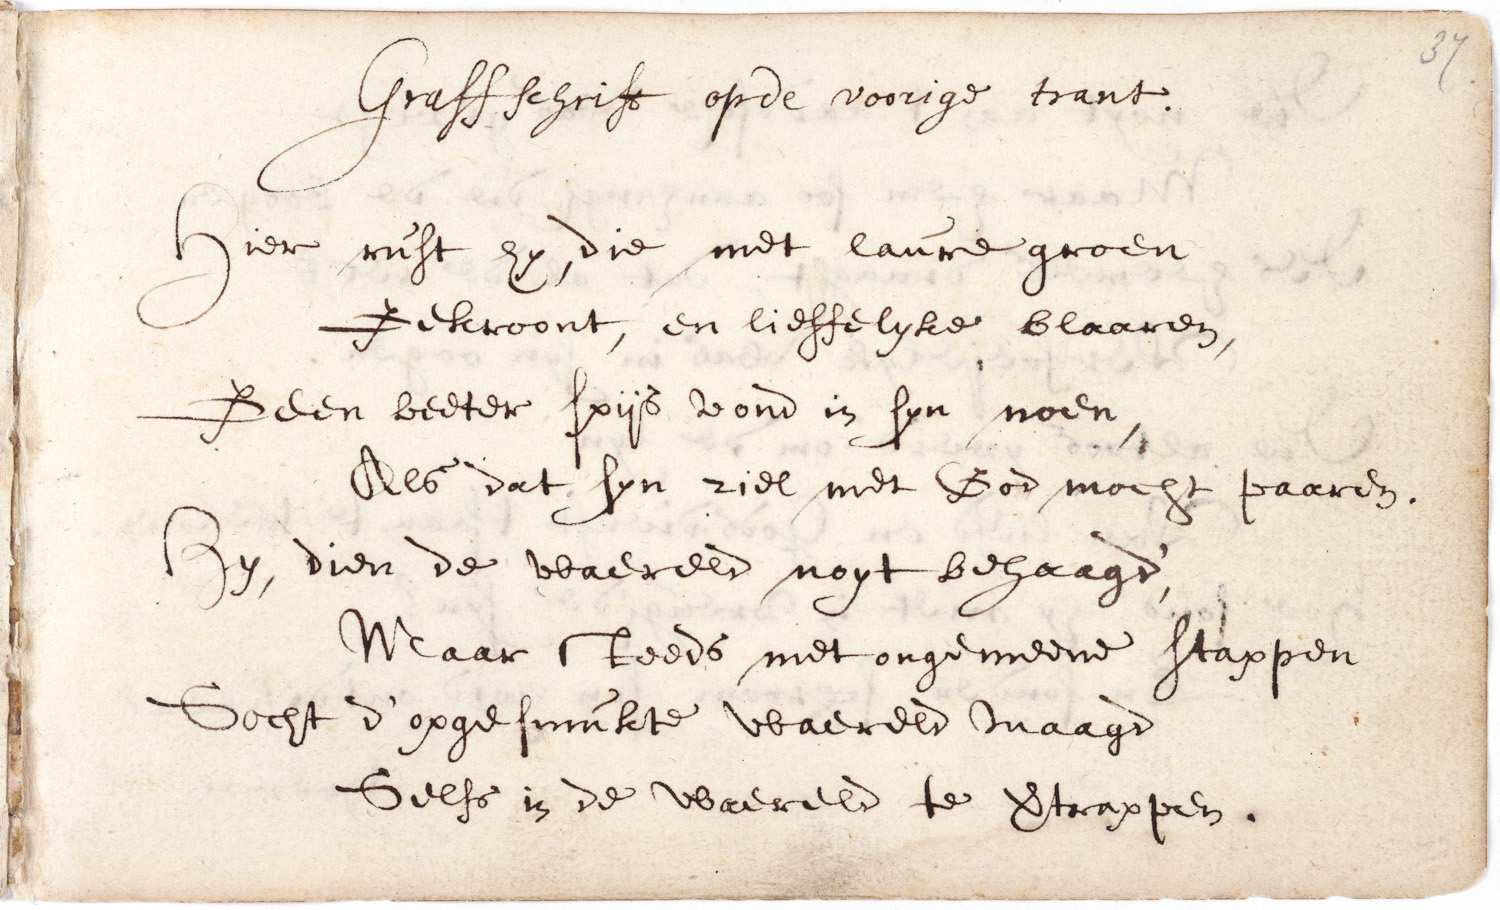 37
Graffschrift op de voorige trant.
Hier rust hy, die met laure groen
Bekroont, en lieffelyke blaaren,
Geen beeter spijs vond in syn noen,
Als dat syn ziel met God mocht paaren.
Hy, dien de waereld noyt behaagd',
Maar steeds met ongemeene stappen
Socht d'opgesmukte waereld maagd
Selfs in de waereld te vertrappen.